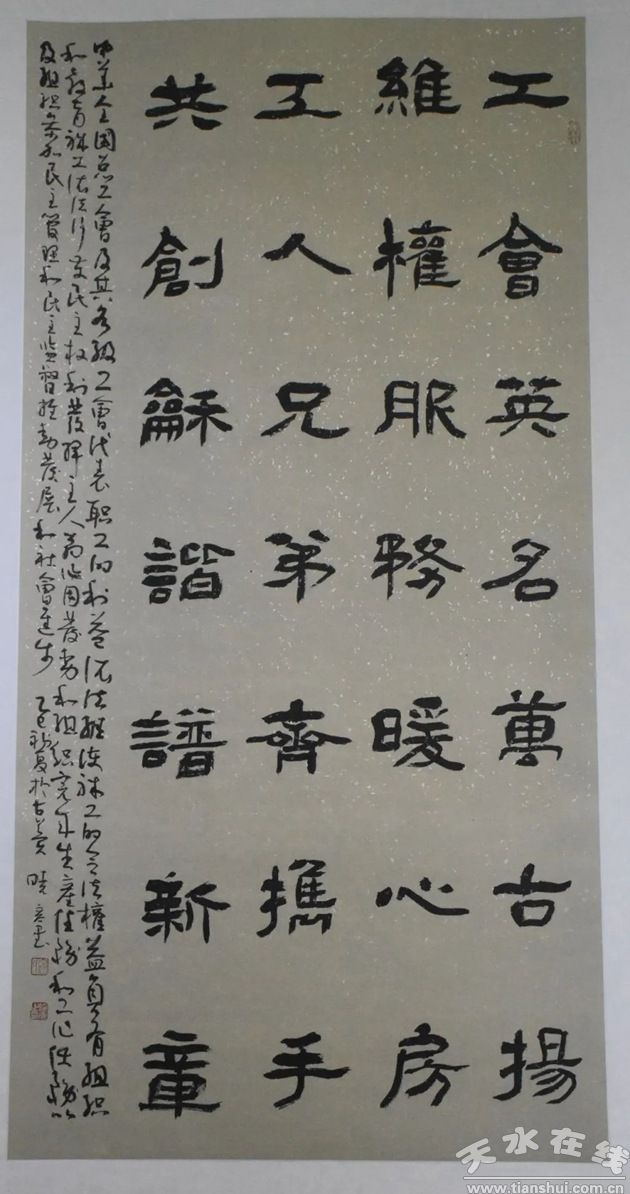 工會英名萬古揚
維權服務暖心房
工人兄弟齊攜手
共創龢諧譜新章
全國总工會及其各級工會代表职工的利益依法維
工的合法權益負有組织
和教育
工依法行
民主权利發揮主人翁作用
和組织完成生產任務和工作任務
及組织参加民主管理和民主监督推動
展和社會進步
天水在线
www.tianshui.com.cn